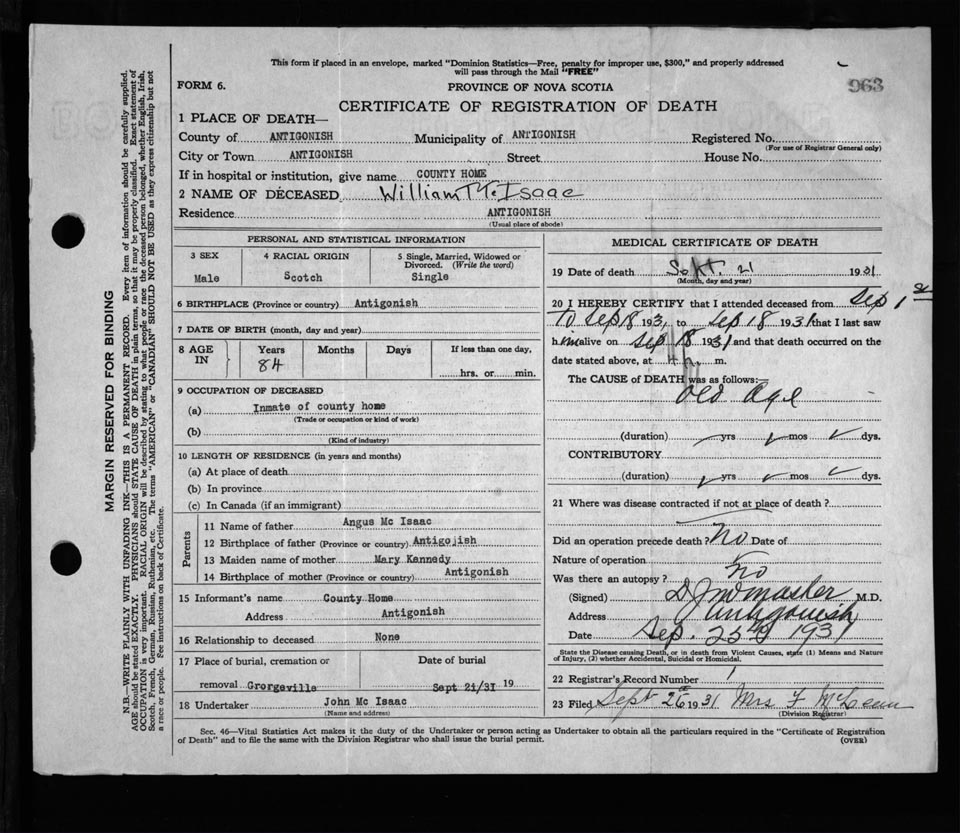 This form if placed in an envelope, marked "Dominion Statistics—Free, penalty for improper use, $300," and properly addressed
will pass through the Mail "FREE"
963
FORM 6.
PROVINCE OF NOVA SCOTIA
CERTIFICATE OF REGISTRATION OF DEATH
1 PLACE OF DEATH—
County of ANTIGONISH Municipality of ANTIGONISH Registered No.
(For use of Registrar General only)
City or Town ANTIGONISH Street House No.
If in hospital or institution, give name COUNTY HOME
2 NAME OF DECEASED William Mc Isaac
Residence ANTIGONISH
(Usual place of abode)
PERSONAL AND STATISTICAL INFORMATION
3 SEX
Male
4 RACIAL ORIGIN
Scotch
5 Single, Married, Widowed or
Divorced. (Write the word)
Single
6 BIRTHPLACE (Province or country) Antigonish
7 DATE OF BIRTH (month, day and year)
8 AGE
IN
Years
84
Months
Days
If less than one day.
hrs. or min.
9 OCCUPATION OF DECEASED
(a) Inmate of county home
(Trade or occupation or kind of work)
(b)
(Kind of industry)
10 LENGTH OF RESIDENCE (in years and months)
(a) At place of death
(b) In province
(c) In Canada (if an immigrant)
Parents
11 Name of father Angus Mc Isaac
12 Birthplace of father (Province or country) Antigojish
13 Maiden name of mother Mary Kannedy
14 Birthplace of mother (Province or country) Antigonish
15 Informant's name County Home
Address Antigonish
16 Relationship to deceased None
17 Place of burial, cremation or Date of burial
removal Grorgeville Sept 21/31 19
18 Undertaker John Mc Isaac
(Name and address)
MEDICAL CERTIFICATE OF DEATH
19 Date of death Sept. 21 1931
(Month, day and year)
20 I HEREBY CERTIFY that I attended deceased from Sep 1st
To Sep 18 1931 to Sep 18 1931 that I last saw
him alive on Sep 18 1931 and that death occurred on the
date stated above, at m.
The CAUSE of DEATH was as follows:—
Old age
(duration) yrs mos dys.
CONTRIBUTORY
(duration) yrs mos dys.
21 Where was disease contracted if not at place of death?
Did an operation precede death? No Date of
Nature of operation
Was there an autopsy? No
(Signed) M.D.
Address Antigonish
Date Sep. 23rd 1931
State the Disease causing Death, or in death from Violent Causes, state (1) Means and Nature
of Injury, (2) whether Accidental, Suicidal or Homicidal.
22 Registrar's Record Number 1
23 Filed Sept 26th 1931 Mrs F
(Division Registrar)
Sec. 46—Vital Statistics Act makes it the duty of the Undertaker or person acting as Undertaker to obtain all the particulars required in the "Certificate of Registration
of Death" and to file the same with the Division Registrar who shall issue the burial permit.
(OVER)
MARGIN RESERVED FOR BINDING
N.B.—WRITE PLAINLY WITH UNFADING INK—THIS IS A PERMANENT RECORD. Every item of information should be carefully supplied.
AGE should be stated EXACTLY. PHYSICIANS should STATE CAUSE OF DEATH in plain terms, so that it may be properly classified. Exact statement of
OCCUPATION is very important. RACIAL ORIGIN will be described by stating to what people or race the deceased person belonged, whether English, Irish,
Scotch, French, German, Russian, Ruthenian, etc. The terms "AMERICAN" or "CANADIAN" SHOULD NOT BE USED as they express citizenship but not
a race or people. Fee instructions on back of Certificate.